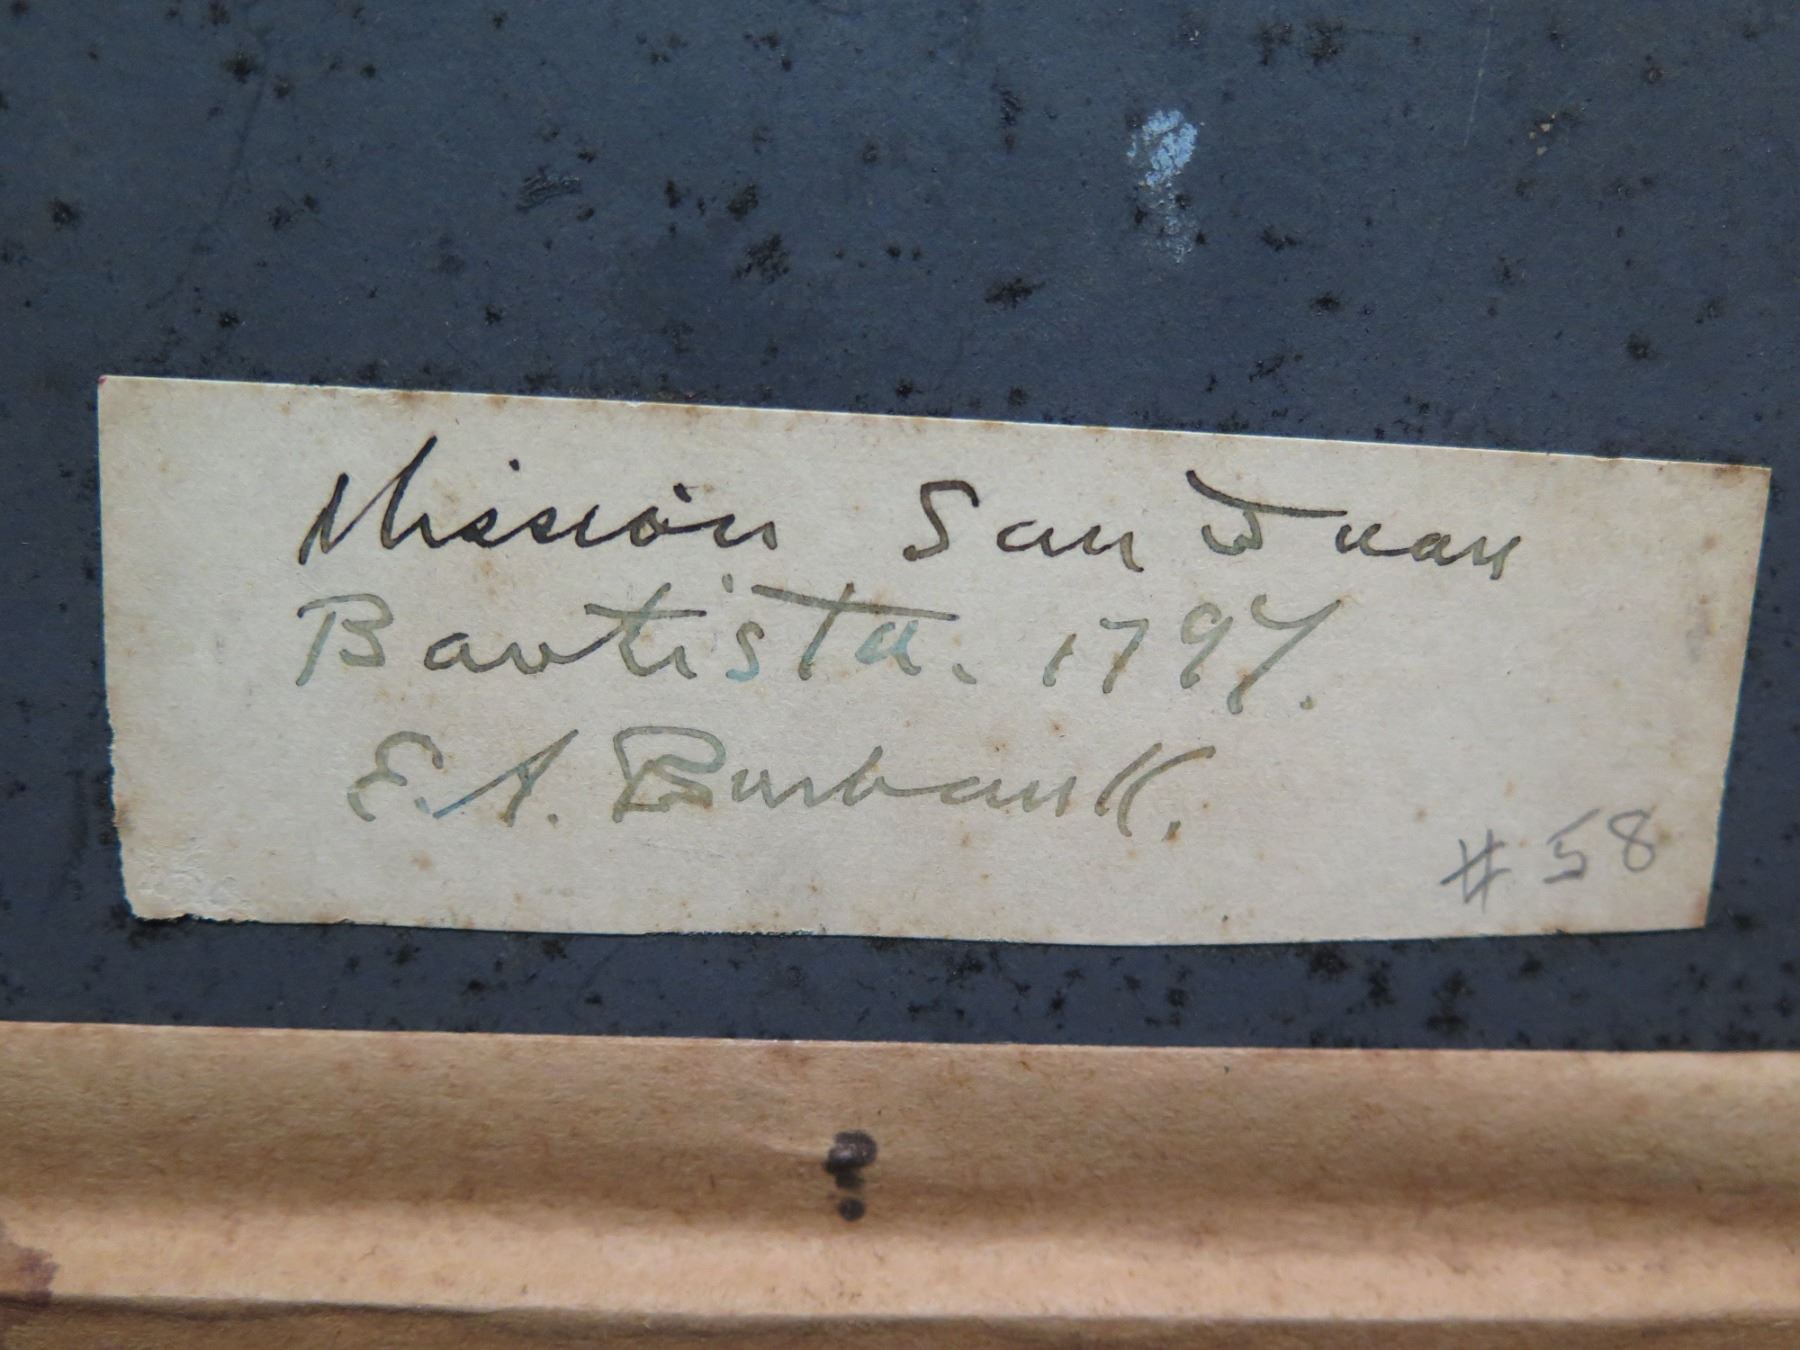 Mission San Juan
Bautista. 1797.
E. A. Burbank.
# 58